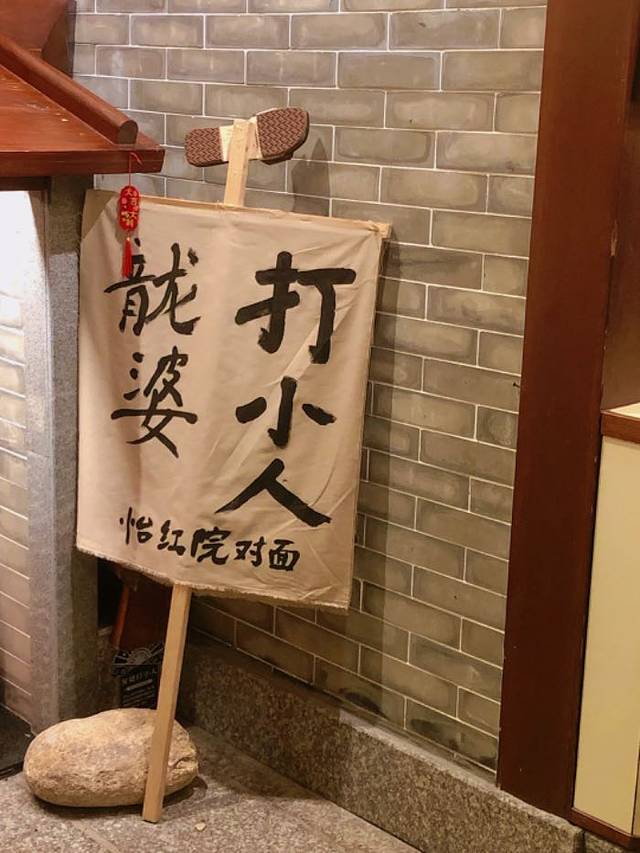 打小人
龍婆
怡红院对面